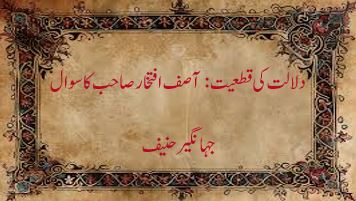 دلالت کی قطعیت: آصف افتخار صاحب کا سوال
جہانگیر حنیف